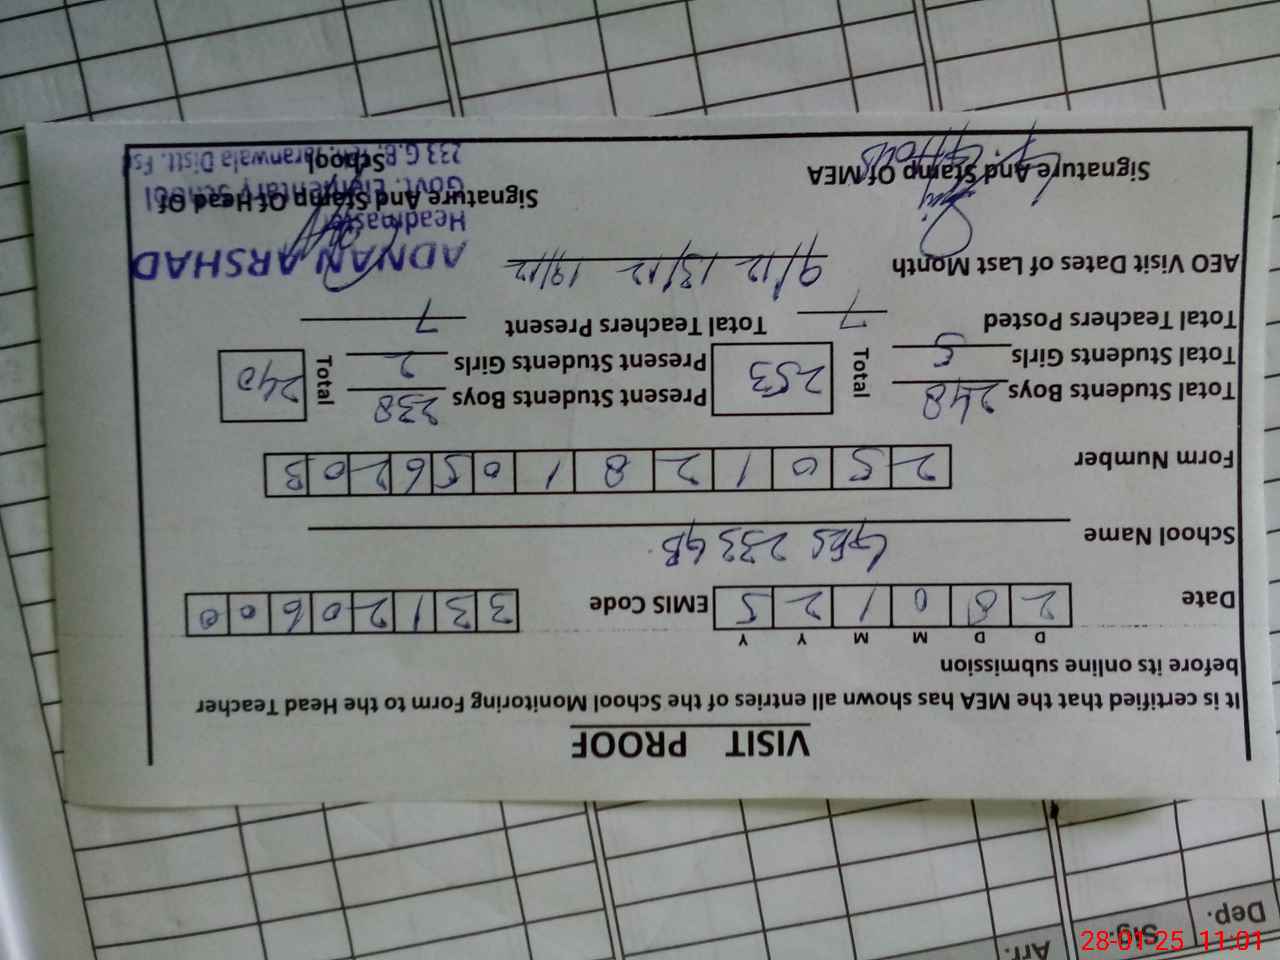 VISIT PROOF
It is certified that the MEA has shown all entries of the School Monitoring Form to the Head Teacher
before its online submission
D D M M Y Y
Date 2 8 0 1 2 5 EMIS Code 3 3 1 2 0 6 0 0
School Name GES 233 GB
Form Number 2 5 0 1 2 8 1 0 5 6 2 0 3
Total Students Boys 248 Total 253 Present Students Boys 238 Total 240
Total Students Girls 5 Present Students Girls 2
Total Teachers Posted 7 Total Teachers Present 7
AEO Visit Dates of Last Month 9/12 13/12 19/12
ADNAN ARSHAD
Headmaster
Signature And Stamp Of MEA Signature And Stamp Of Head Of
School
Govt. Elementary School
233 G.B. Jaranwala Distt. Fsd
Dep.
Sig.
Arr.
28-01-25 11:01